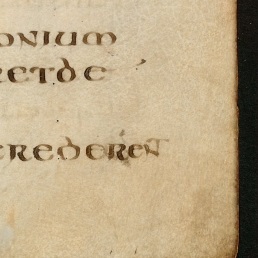 onium
ret de
crederent